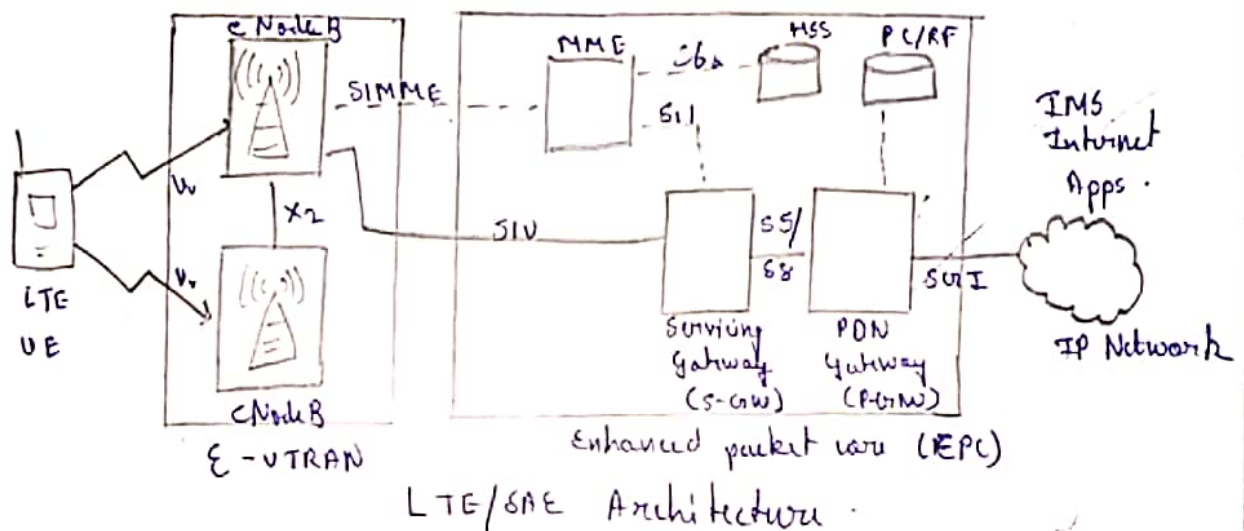 eNodeB
MME
HSS
PC/RF
S6a
S1MME
S11
IMS
Internet
Apps.
Uu
X2
S1U
S5/
S8
SGI
LTE
UE
Uu
Serving
Gateway
(S-GW)
PDN
Gateway
(P-GW)
IP Network
eNodeB
E-UTRAN
Enhanced packet core (EPC)
LTE/SAE Architecture.